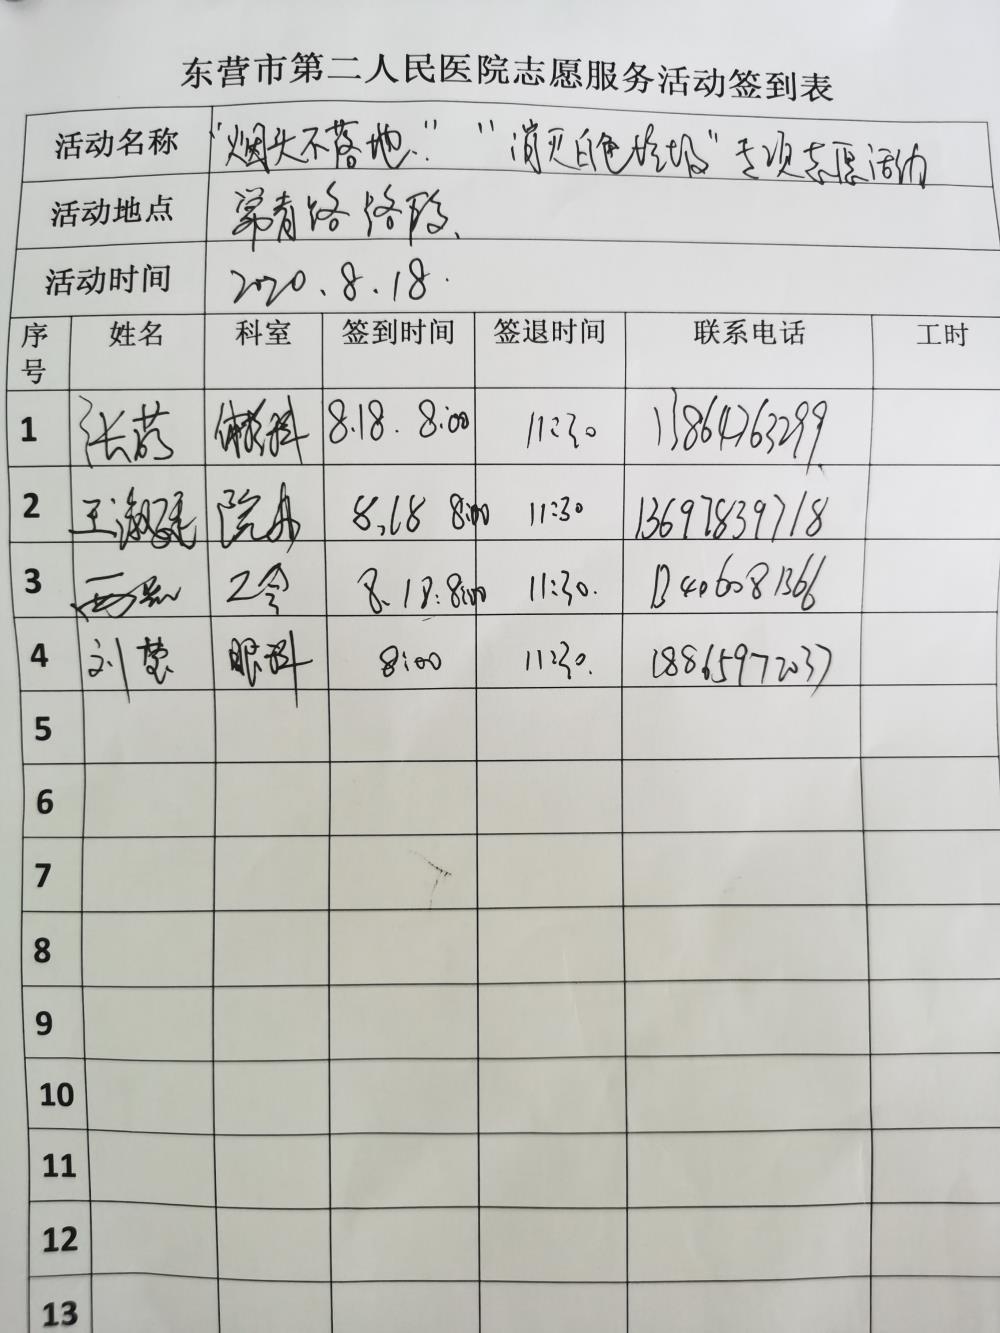 东营市第二人民医院志愿服务活动签到表
活动名称 "烟头不落地" "消灭白色垃圾"专项志愿活动
活动地点 路 路段
活动时间 2020.8.18
序号 姓名 科室 签到时间 签退时间 联系电话 工时
1 张 科 8.18. 8:00 11:30 13864763299
2 王淑廷 院办 8.18 8:00 11:30 13697839718
3 工会 8.18.8:00 11:30.
4 刘慧 眼科 8:00 11:30. 18865972037
5
6
7
8
9
10
11
12
13